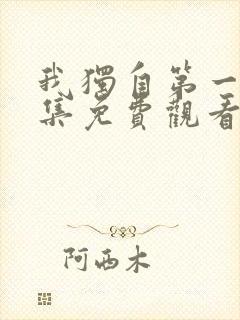 我獨自第一
集免費觀看
阿西木